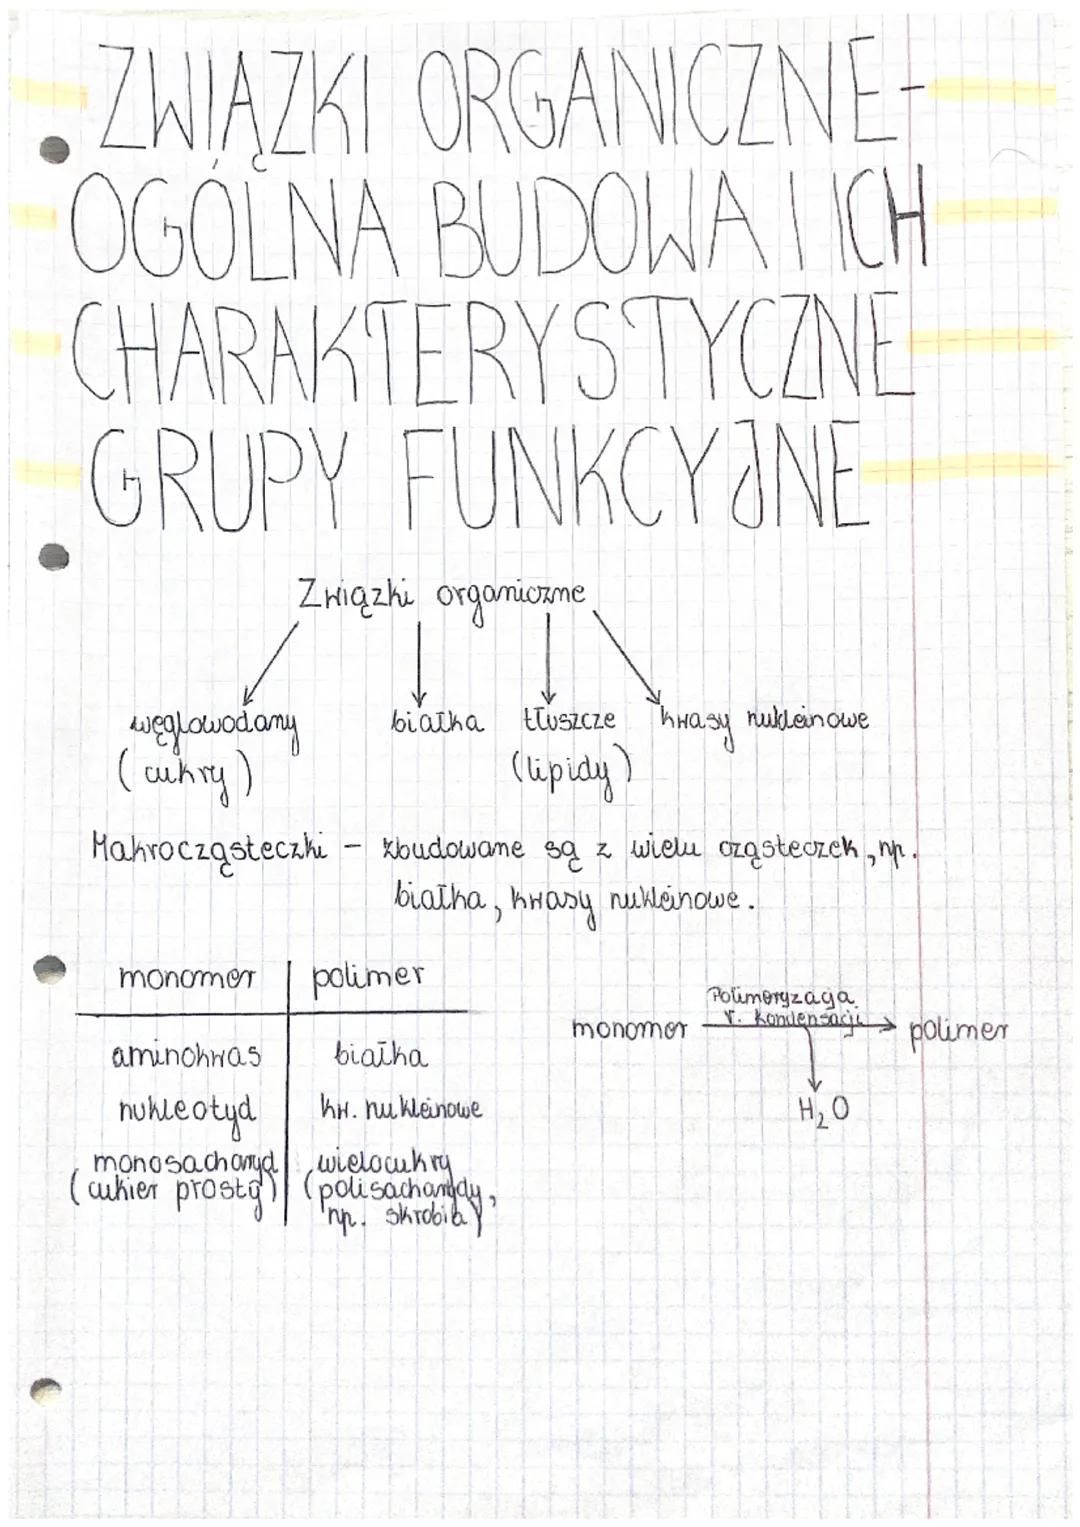 ZWIĄZKI ORGANICZNE-
OGÓLNA BUDOWA I ICH
CHARAKTERYSTYCZNE
GRUPY FUNKCYJNE
Związki organiczne
węglowodany białka tłuszcze kwasy nukleinowe
(cukry) (lipidy)
Makrocząsteczki - zbudowane są z wielu cząsteczek, np.
białka, kwasy nukleinowe.
monomer polimer
aminokwas białka
nukleotyd kw. nukleinowe
monosacharyd wielocukry
(cukier prosty) (polisacharydy,
np. skrobia)
Polimeryzacja
r. kondensacji
monomer polimer
H₂O